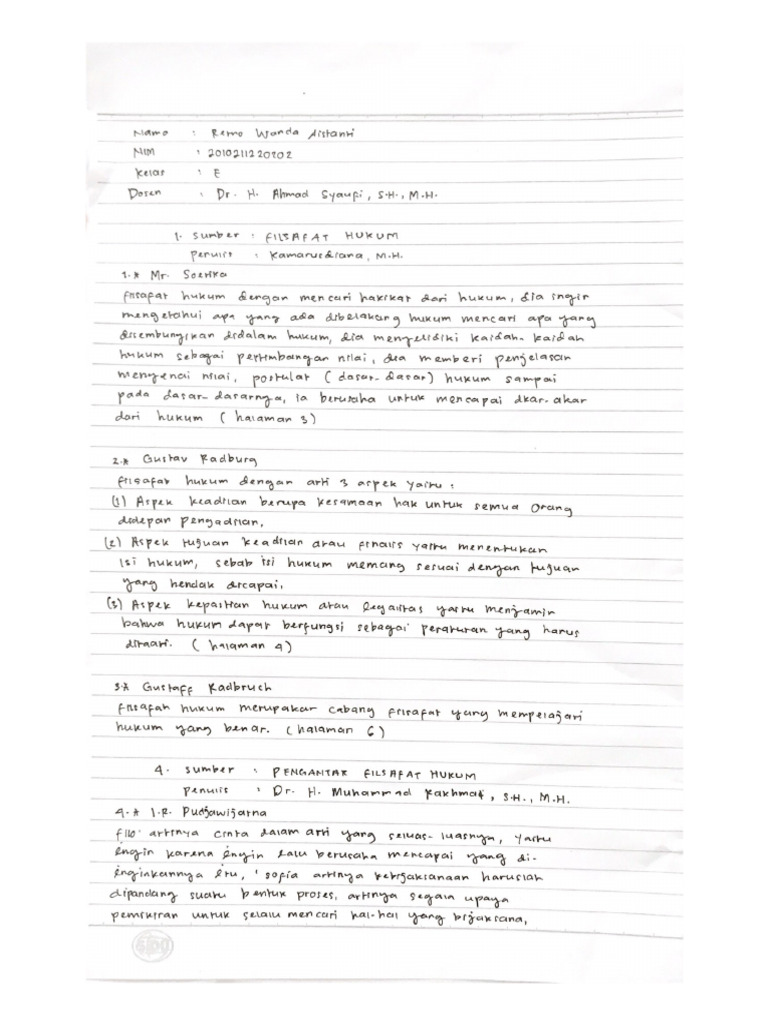 Nama : Remo Wanda Aistanti
NIM : 2010211220202
Kelas : E
Dosen : Dr. H. Ahmad Syaufi, S.H., M.H.
1. Sumber : FILSAFAT HUKUM
Penulis : Kamarusdiana, M.H.
1.* Mr. Soetika
filsafat hukum dengan mencari hakikat dari hukum, dia ingin
mengetahui apa yang ada dibelakang hukum mencari apa yang
disembunyikan didalam hukum, dia menyelidiki kaidah-kaidah
hukum sebagai pertimbangan nilai, dia memberi penjelasan
mengenai nilai, postulat (dasar-dasar) hukum sampai
pada dasar-dasarnya, ia berusaha untuk mencapai akar-akar
dari hukum (halaman 3)
2.* Gustav Radburg
filsafat hukum dengan arti 3 aspek yaitu :
(1) Aspek keadilan berupa kesamaan hak untuk semua orang
didepan pengadilan,
(2) Aspek tujuan keadilan atau finalis yaitu menentukan
isi hukum, sebab isi hukum memang sesuai dengan tujuan
yang hendak dicapai,
(3) Aspek kepastian hukum atau legalitas yaitu menjamin
bahwa hukum dapat berfungsi sebagai peraturan yang harus
ditaati. (halaman 4)
3.* Gustaff Radbruch
filsafah hukum merupakar cabang filsafat yang mempelajari
hukum yang benar. (halaman 6)
4. Sumber : PENGANTAR FILSAFAT HUKUM
Penulis : Dr. H. Muhammad Rakhmat, S.H., M.H.
4.* I.R. Pudjawijatna
filo' artinya cinta dalam arti yang seluas-luasnya, yaitu
ingin karena ingin lalu berusaha mencapai yang di-
inginkannya itu, 'sofia artinya kebijaksanaan haruslah
dipandang suatu bentuk proses, artinya segala upaya
pemikiran untuk selalu mencari hal-hal yang bijaksana,
SIDU